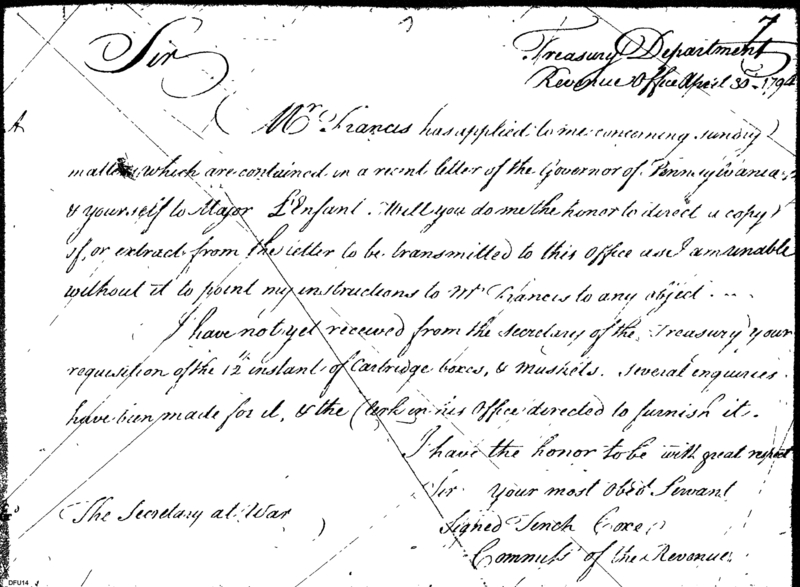 7
Sir
Treasury Department
Revenue Office April 30th 1794
A
Mr Francis has applied to me concerning sundry
matters which are contained in a recent letter of the Governor of Pennsylvania
& yourself to Major L'Enfant. Will you do me the honor to direct a copy
of, or extract from the letter to be transmitted to this Office as I am unable
without it to point my instructions to Mr Francis to any object. . . .
I have not yet received from the Secretary of the Treasury your
requisition of the 12th instant of Cartridge boxes, & muskets. Several enquiries
have been made for it, & the Clerk in his Office directed to furnish it.
I have the honor to be with great respect
Sir your most Obed Servant
The Secretary at War
signed Tench Coxe
Commissr of the Revenue.
DFU14